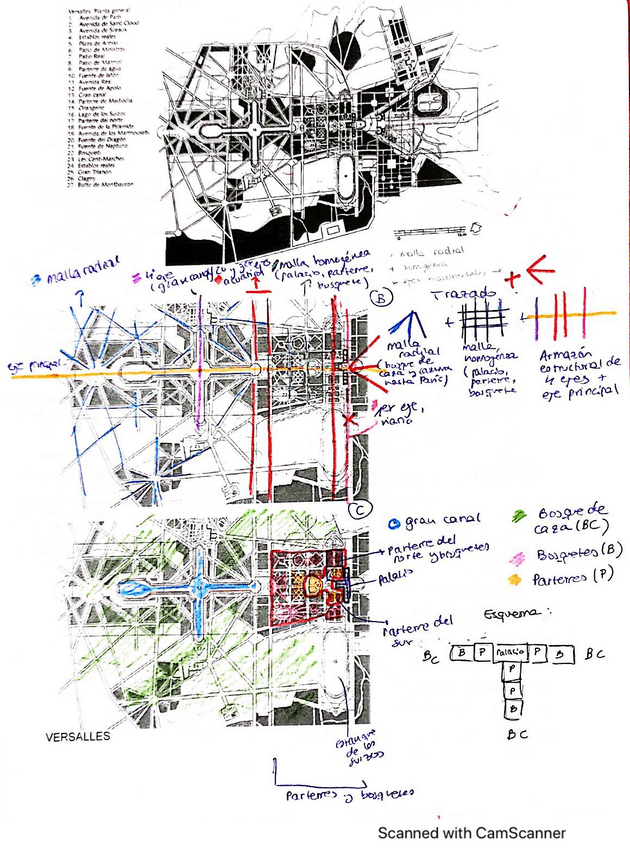 Versalles. Planta general
1 Avenida de París
2 Avenida de Saint Cloud
3 Avenida de Sceaux
4 Establos reales
5 Plaza de Armas
6 Patio de Ministros
7 Patio Real
8 Patio de Mármol
9 Parterre de agua
10 Fuente de latón
11 Avenida Real
12 Fuente de Apolo
13 Gran canal
14 Parterre de Mediodía
15 Orangerie
16 Lago de los Suizos
17 Parterre del norte
18 Fuente de la Pirámide
19 Avenida de los Marmousets
20 Fuente del Dragón
21 Fuente de Neptuno
22 Bosquets
23 Les Cent-Marches
24 Establos reales
25 Gran Trianon
26 Clagny
27 Butte de Montbauron
malla radial
4º eje
(gran canal)
2º y 3er eje
malla homogénea
(palacio, parterre,
bosquete)
malla radial
+ homogénea
B
Trazado
eje principal
malla
radial
(bosque de
caza y
hasta París)
+
malla
homogénea
(palacio,
parterre,
bosquete
+
Armazón
estructural de
4 ejes +
eje principal
1er eje,
C
gran canal
Bosque de
caza (BC)
Bosquetes (B)
Parterres (P)
Parterre del
norte y bosquetes
Palacio
Parterre del
sur
Esquema:
BC B P Palacio P B BC
P
P
B
BC
VERSALLES
estanque
de los
suizos
Parterres y bosquetes
Scanned with CamScanner